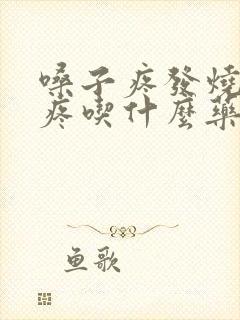 嗓子疼發燒
疼喫什麼藥
鱼歌